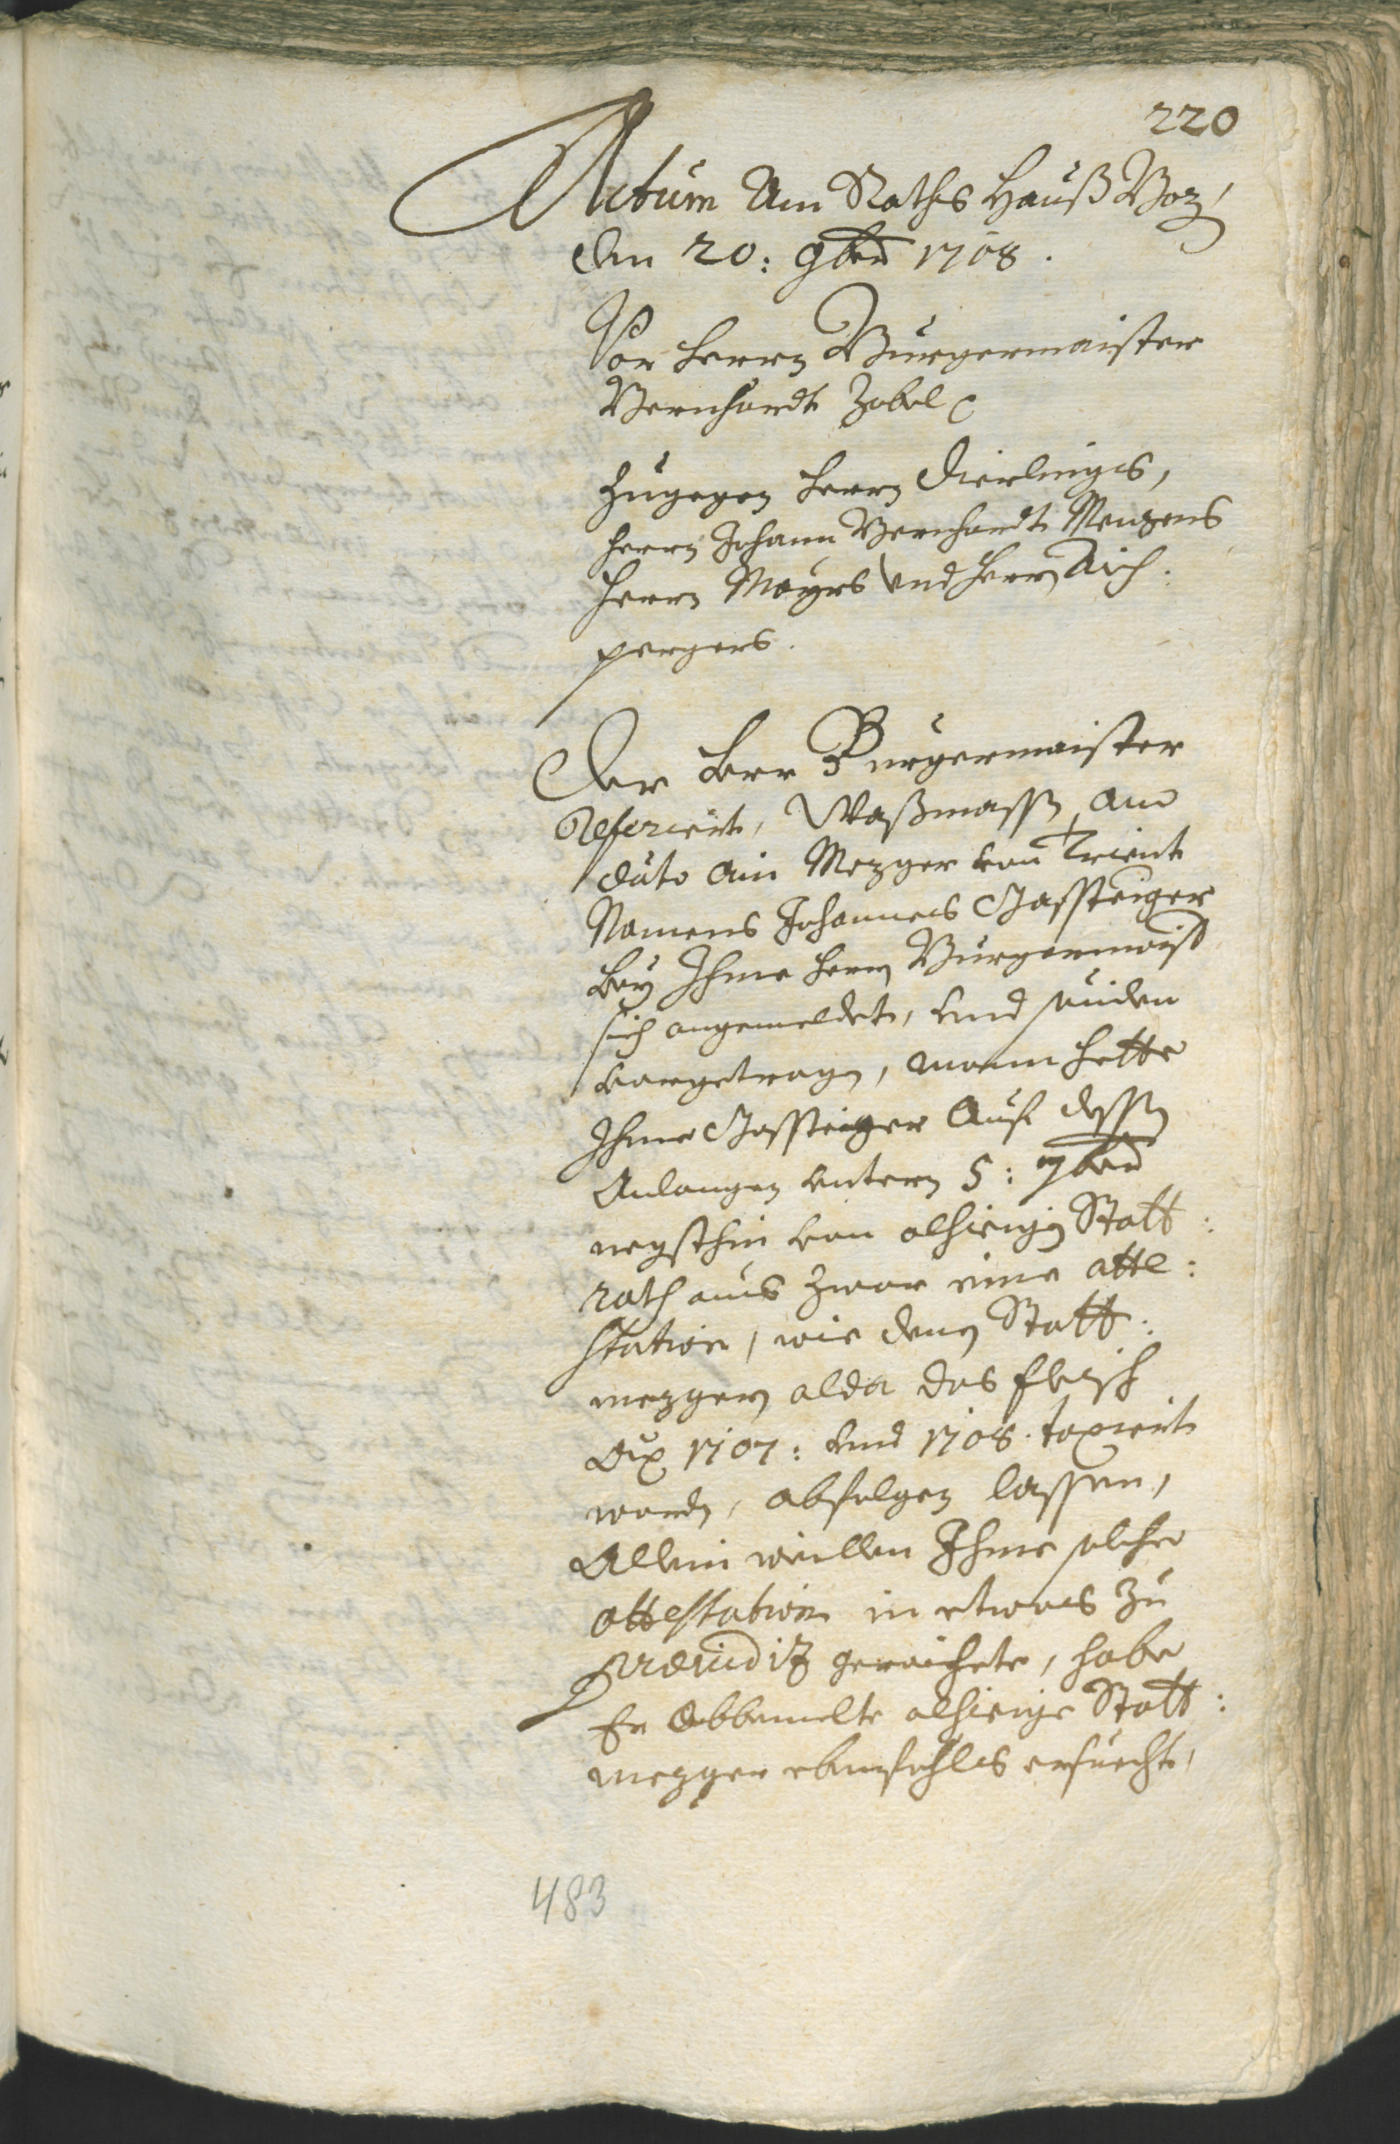 220
Actum Am Raths Hauß Boz:
den 20: 9ber 1708.
Vor Herrn Burgermaister
Bernhardt Zobel
Zugegen Herrn Dierlings,
Herrn Johann Bernhardt Menzens
Herrn Mayrs und Herrn Aich:
pergers.
Der Herr Burgermaister
Referiert, Waßmassen, am
dato ain Mezger von Trient
Namens Johannes Gassteiger
bey Ihme Herrn Burgermaister
sich angemeldet, und
vorgetragen, wann hette
Ihme Gassteiger Auf dessen
Anlangen untern 5: 9ber
negsthin von alhiesigen Statt:
rath aus zwar eine atte:
station, wie denen Statt:
mezgern alda das fleisch
A͠o 1707: und 1708. taxiert
worden, abfolgen lassen,
Allein weillen Ihme solche
attestation in etwas zu
Praeiudiz geraichete, habe
Er Obbemelte alhiesige Statt:
mezger ebenfahls ersuecht,
483